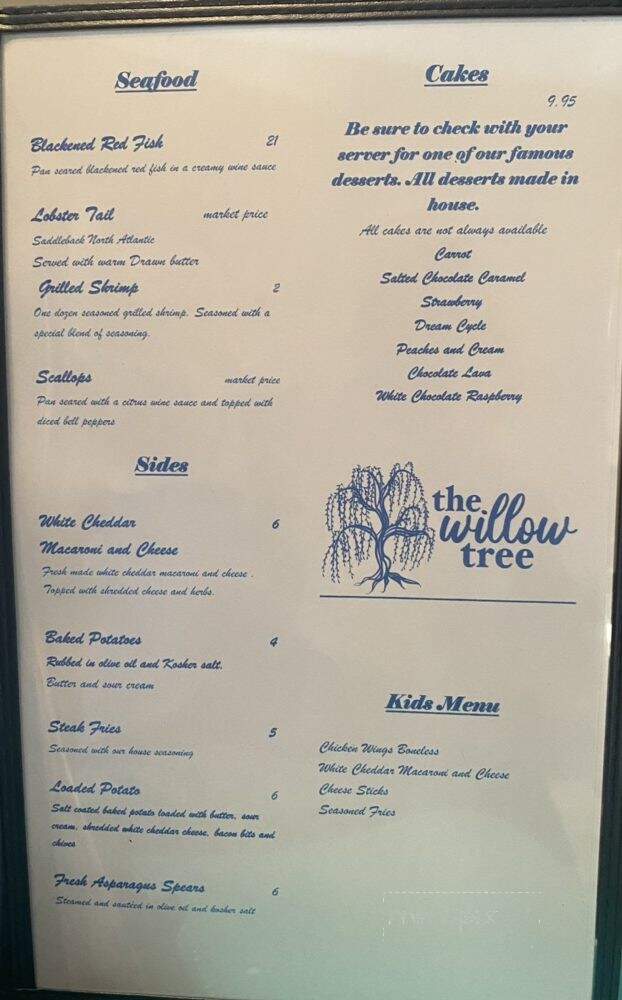 Seafood
Blackened Red Fish 21
Pan seared blackened red fish in a creamy wine sauce
Lobster Tail market price
Saddleback North Atlantic
Served with warm Drawn butter
Grilled Shrimp 2
One dozen seasoned grilled shrimp. Seasoned with a
special blend of seasoning.
Scallops market price
Pan seared with a citrus wine sauce and topped with
diced bell peppers
Sides
White Cheddar 6
Macaroni and Cheese
Fresh made white cheddar macaroni and cheese .
Topped with shredded cheese and herbs.
Baked Potatoes 4
Rubbed in olive oil and Kosher salt.
Butter and sour cream
Steak Fries 5
Seasoned with our house seasoning
Loaded Potato 6
Salt coated baked potato loaded with butter, sour
cream, shredded white cheddar cheese, bacon bits and
chives
Fresh Asparagus Spears 6
Steamed and sautéed in olive oil and kosher salt
Cakes
9.95
Be sure to check with your
server for one of our famous
desserts. All desserts made in
house.
All cakes are not always available
Carrot
Salted Chocolate Caramel
Strawberry
Dream Cycle
Peaches and Cream
Chocolate Lava
White Chocolate Raspberry
the
willow
tree
Kids Menu
Chicken Wings Boneless
White Cheddar Macaroni and Cheese
Cheese Sticks
Seasoned Fries